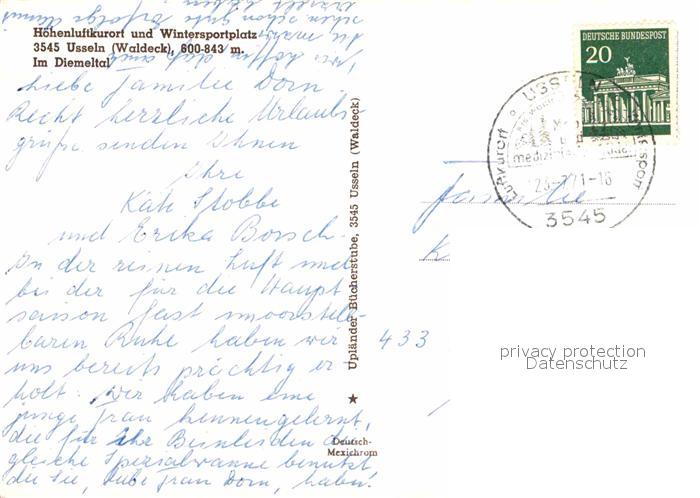 Höhenluftkurort und Wintersportplatz
3545 Usseln (Waldeck), 600-843 m.
Im Diemeltal
Liebe Familie Dorn.
Recht herzliche Urlaubs
grüße senden Ihnen
Ihre
Käte Stobbe
und Erika Borsch.
In der reinen Luft und
bei der für die Haupt
saison fast unvorstell-
baren Ruhe haben wir
uns bereits prächtig er
holt. Wir haben eine
junge Frau kennengelernt,
die für Ihr Beinleiden die
gleiche Spezialwanne benutzt,
die Sie, liebe Frau Dorn, haben.
Upländer Bücherstube, 3545 Usseln (Waldeck)
Deutsch-
Mexichrom
DEUTSCHE BUNDESPOST
20
USSELN
Luftkurort
3545
Familie
K
433
privacy protection
Datenschutz